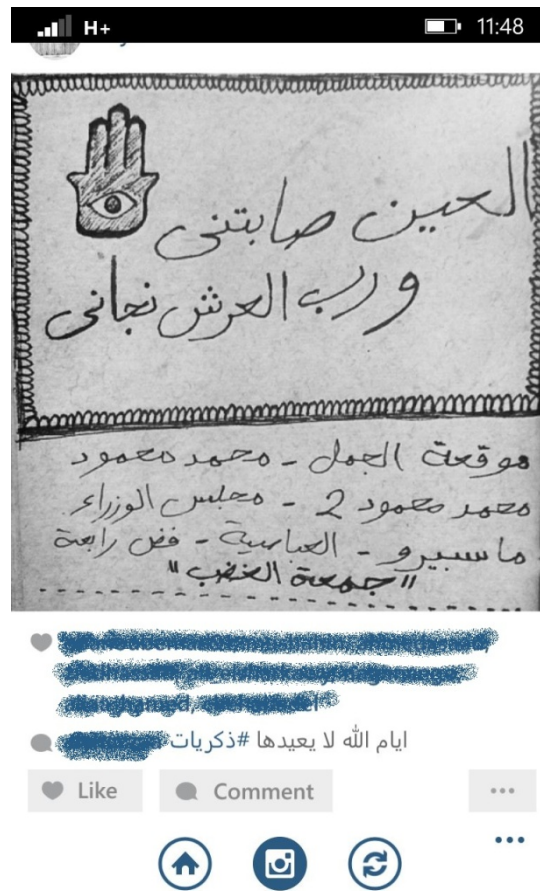 H+ 11:48
العين صابتنى
ورب العرش نجانى
موقعة الجمل - محمد محمود
محمد محمود 2 - مجلس الوزراء
ماسبيرو - العباسية - فض رابعة
"جمعة الغضب"
ايام الله لا يعيدها #ذكريات
Like Comment